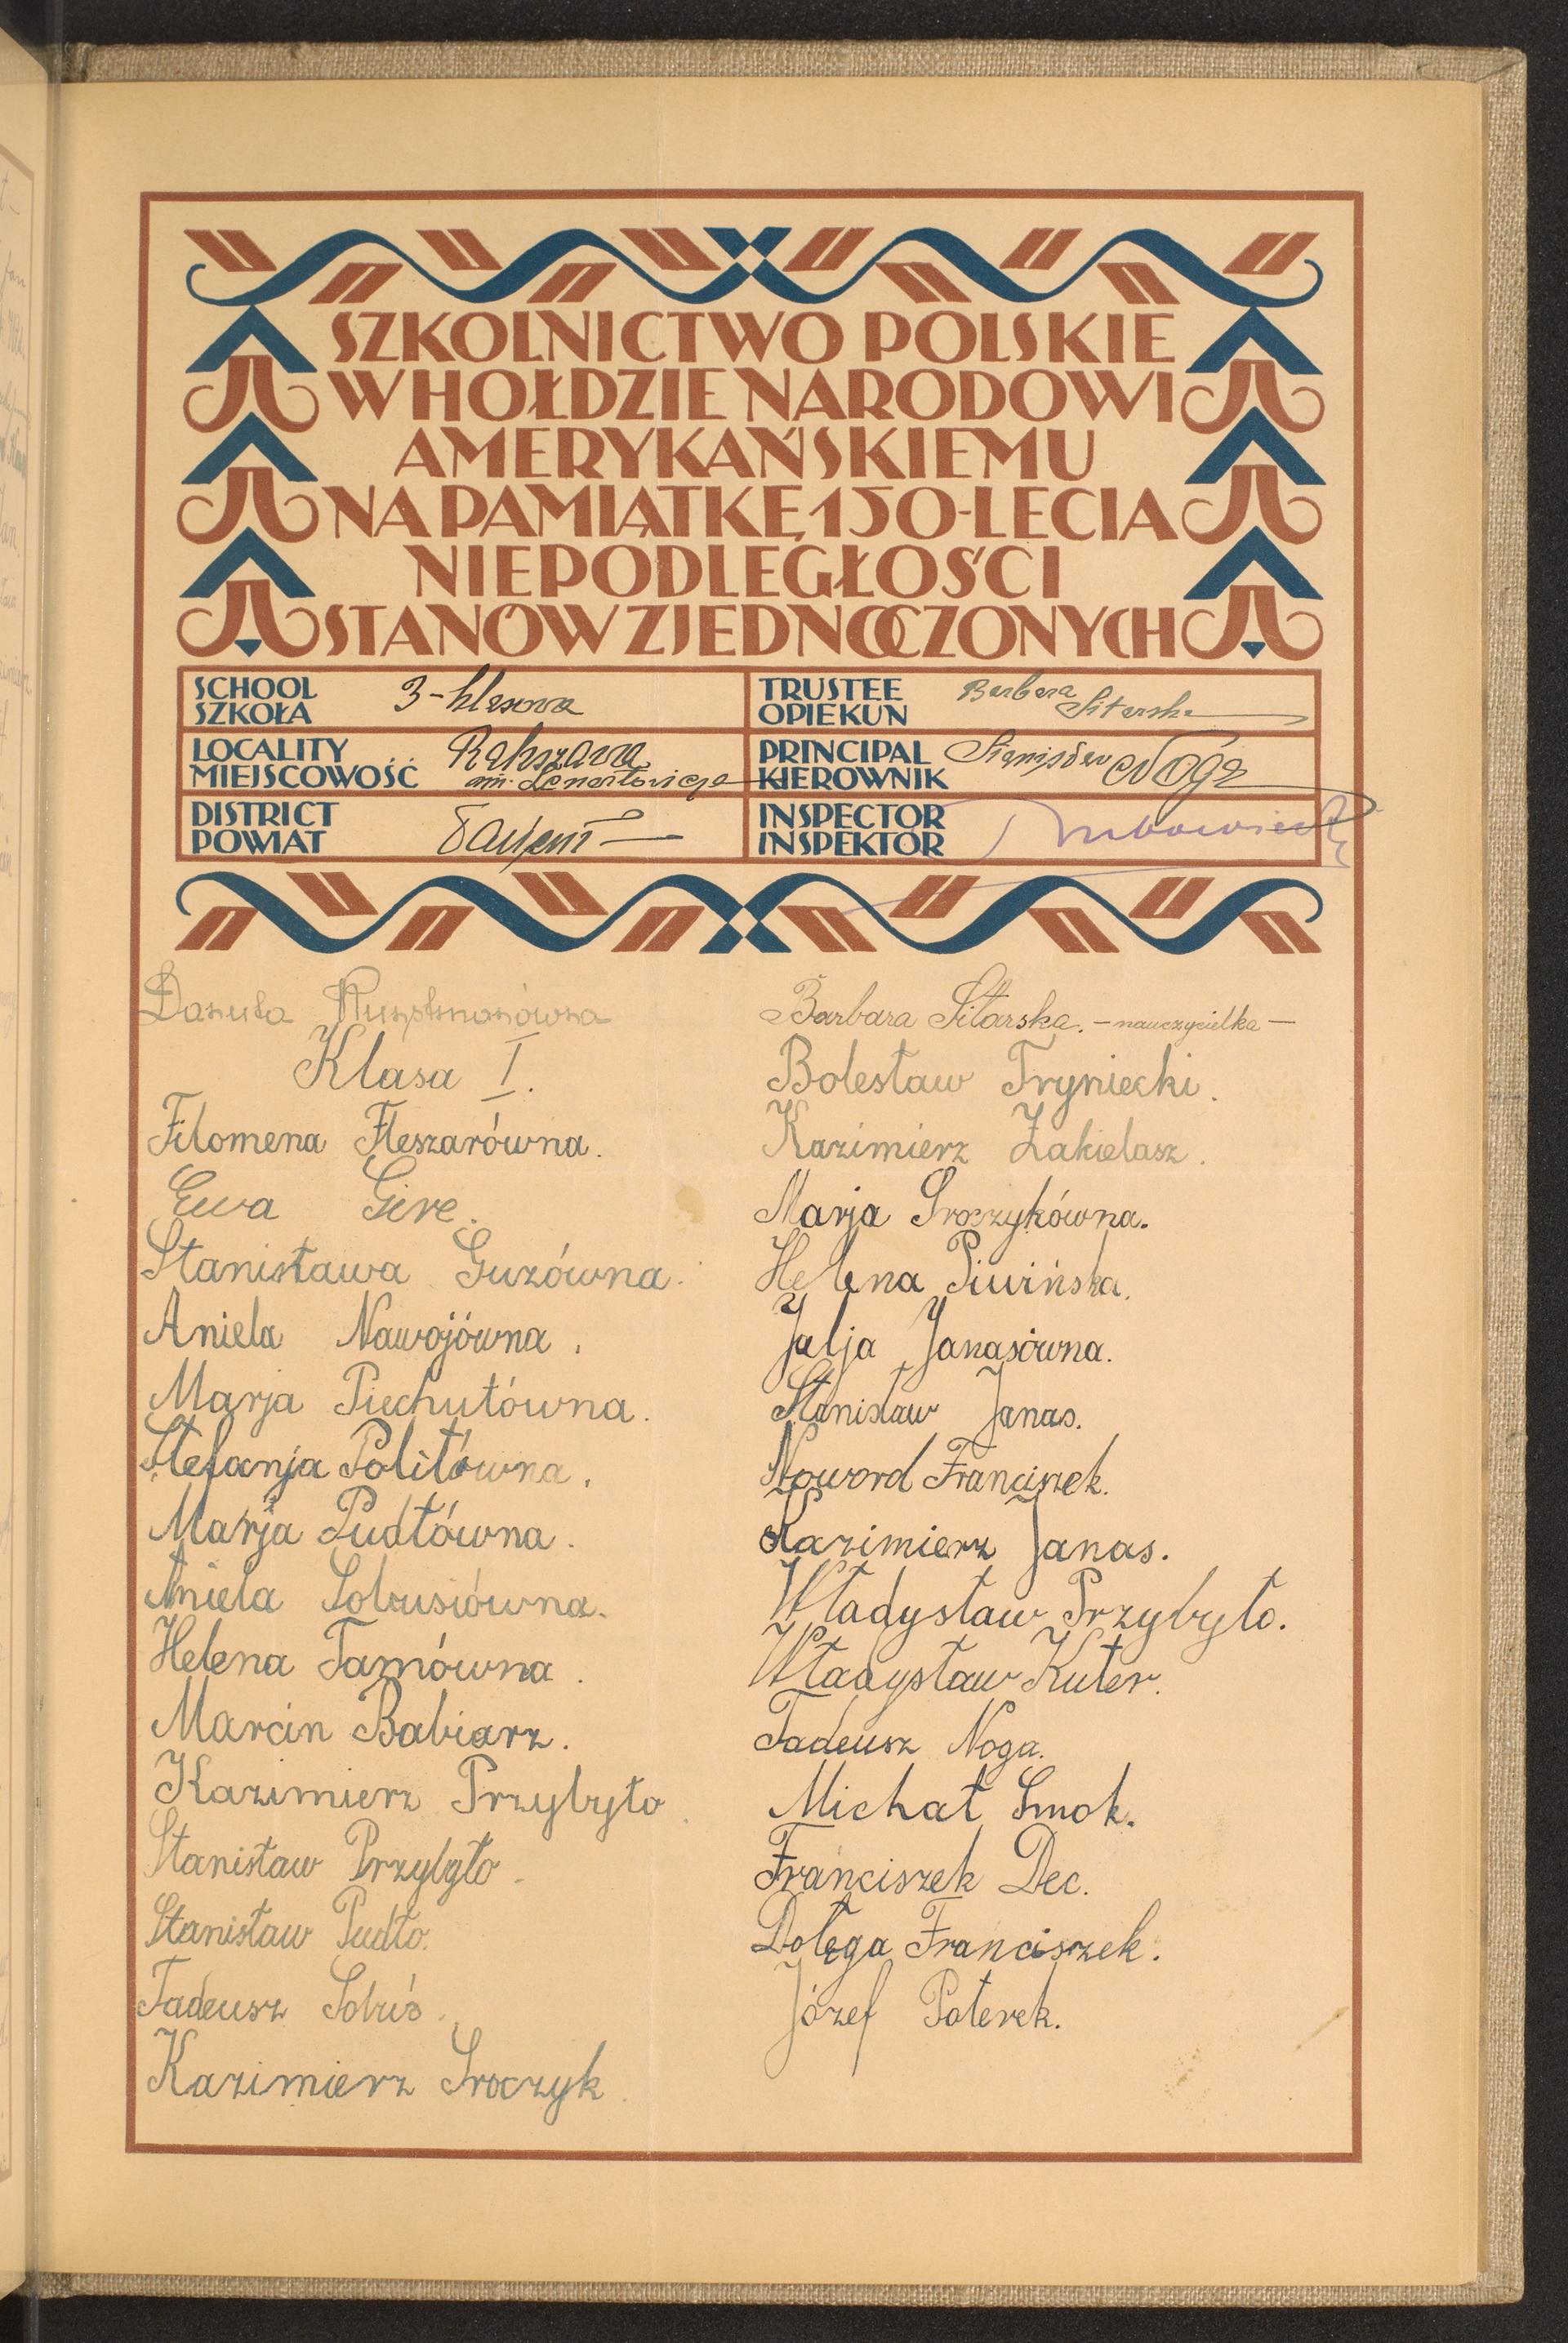 SZKOLNICTWO POLSKIE
W HOŁDZIE NARODOWI
AMERYKAŃSKIEMU
NA PAMIĄTKĘ 150-LECIA
NIEPODLEGŁOŚCI
STANÓW ZJEDNOCZONYCH
SCHOOL
SZKOŁA
3-klasowa
TRUSTEE
OPIEKUN
Barbara
Sitarska
LOCALITY
MIEJSCOWOŚĆ
Rakszawa
im. Lenartowicza
PRINCIPAL
KIEROWNIK
Stanisław Noga
DISTRICT
POWIAT
Łańcut
INSPECTOR
INSPEKTOR
Danuta
Klasa I.
Filomena Fleszarówna.
Ewa Gire.
Stanisława Guzówna.
Aniela Nawojówna.
Marja Piechutówna.
Stefanja Politówna.
Marja Pudłówna.
Aniela Sobusiówna.
Helena Tamówna.
Marcin Babiarz.
Kazimierz Przybyło
Stanisław Przybyło
Stanisław Pudło.
Tadeusz Sobuś.
Kazimierz Sroczyk
Barbara Sitarska. - nauczycielka -
Bolesław Tryniecki.
Kazimierz Zakielasz.
Marja Sroczykówna.
Helena Piwińska.
Julja Janasówna.
Stanisław Janas.
Noword Franciszek.
Kazimierz Janas.
Władysław Przybyło.
Władysław Kuter.
Tadeusz Noga.
Michał Smok.
Franciszek Dec.
Dołęga Franciszek.
Józef Paterek.